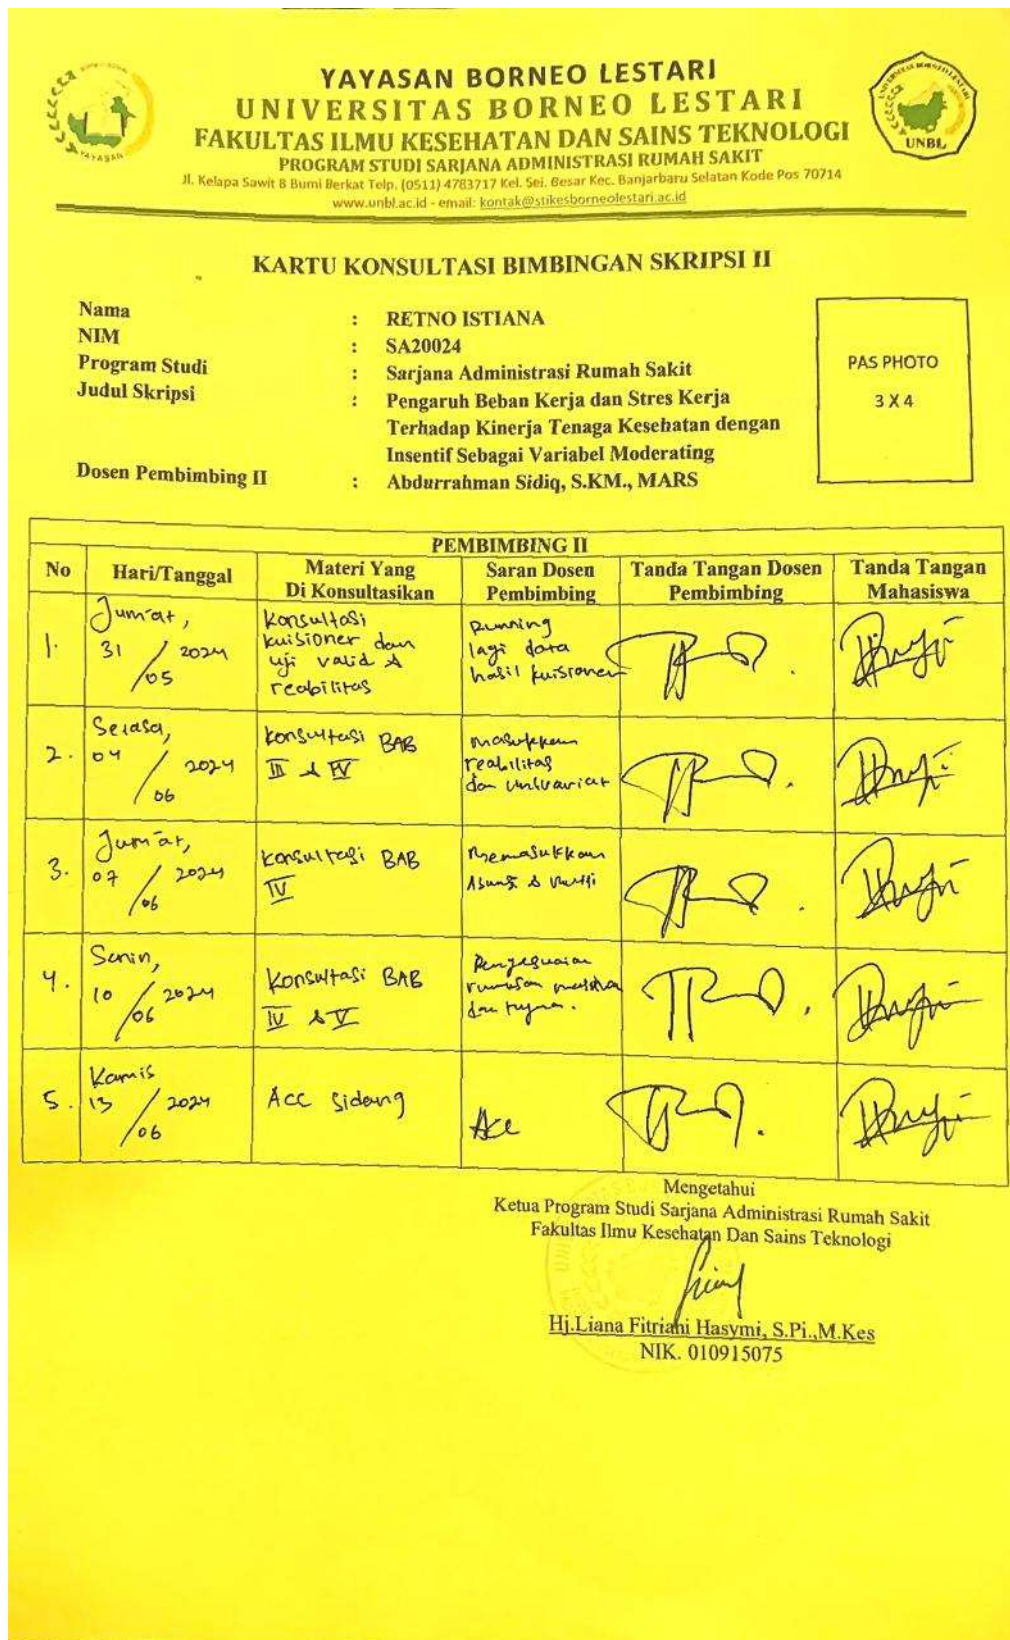 YAYASAN BORNEO LESTARI
UNIVERSITAS BORNEO LESTARI
FAKULTAS ILMU KESEHATAN DAN SAINS TEKNOLOGI
PROGRAM STUDI SARJANA ADMINISTRASI RUMAH SAKIT
Jl. Kelapa Sawit 8 Bumi Berkat Telp. (0511) 4783717 Kel. Sei. Besar Kec. Banjarbaru Selatan Kode Pos 70714
www.unbl.ac.id - email: kontak@stikesborneolestari.ac.id
YAYASAN
UNBL
KARTU KONSULTASI BIMBINGAN SKRIPSI II
Nama : RETNO ISTIANA
NIM : SA20024
Program Studi : Sarjana Administrasi Rumah Sakit
Judul Skripsi : Pengaruh Beban Kerja dan Stres Kerja
Terhadap Kinerja Tenaga Kesehatan dengan
Insentif Sebagai Variabel Moderating
Dosen Pembimbing II : Abdurrahman Sidiq, S.KM., MARS
PAS PHOTO
3 X 4
PEMBIMBING II
No Hari/Tanggal Materi Yang Di Konsultasikan Saran Dosen Pembimbing Tanda Tangan Dosen Pembimbing Tanda Tangan Mahasiswa
1. Jum'at,
31 / 05 2024
Konsultasi
kuisioner dan
uji valid &
reabilitas
Running
lagi data
hasil kuisioner
2. Selasa,
04 / 06 2024
Konsultasi BAB
III & IV
masukkan
reabilitas
dan univariat
3. Jum'at,
07 / 06 2024
Konsultasi BAB
IV
Memasukkan
4. Senin,
10 / 06 2024
Konsultasi BAB
IV & V
Penyesuaian
rumusan masalah
dan tujuan.
5. Kamis
13 / 06 2024
Acc Sidang
Acc
Mengetahui
Ketua Program Studi Sarjana Administrasi Rumah Sakit
Fakultas Ilmu Kesehatan Dan Sains Teknologi
Hj.Liana Fitriani Hasymi, S.Pi.,M.Kes
NIK. 010915075